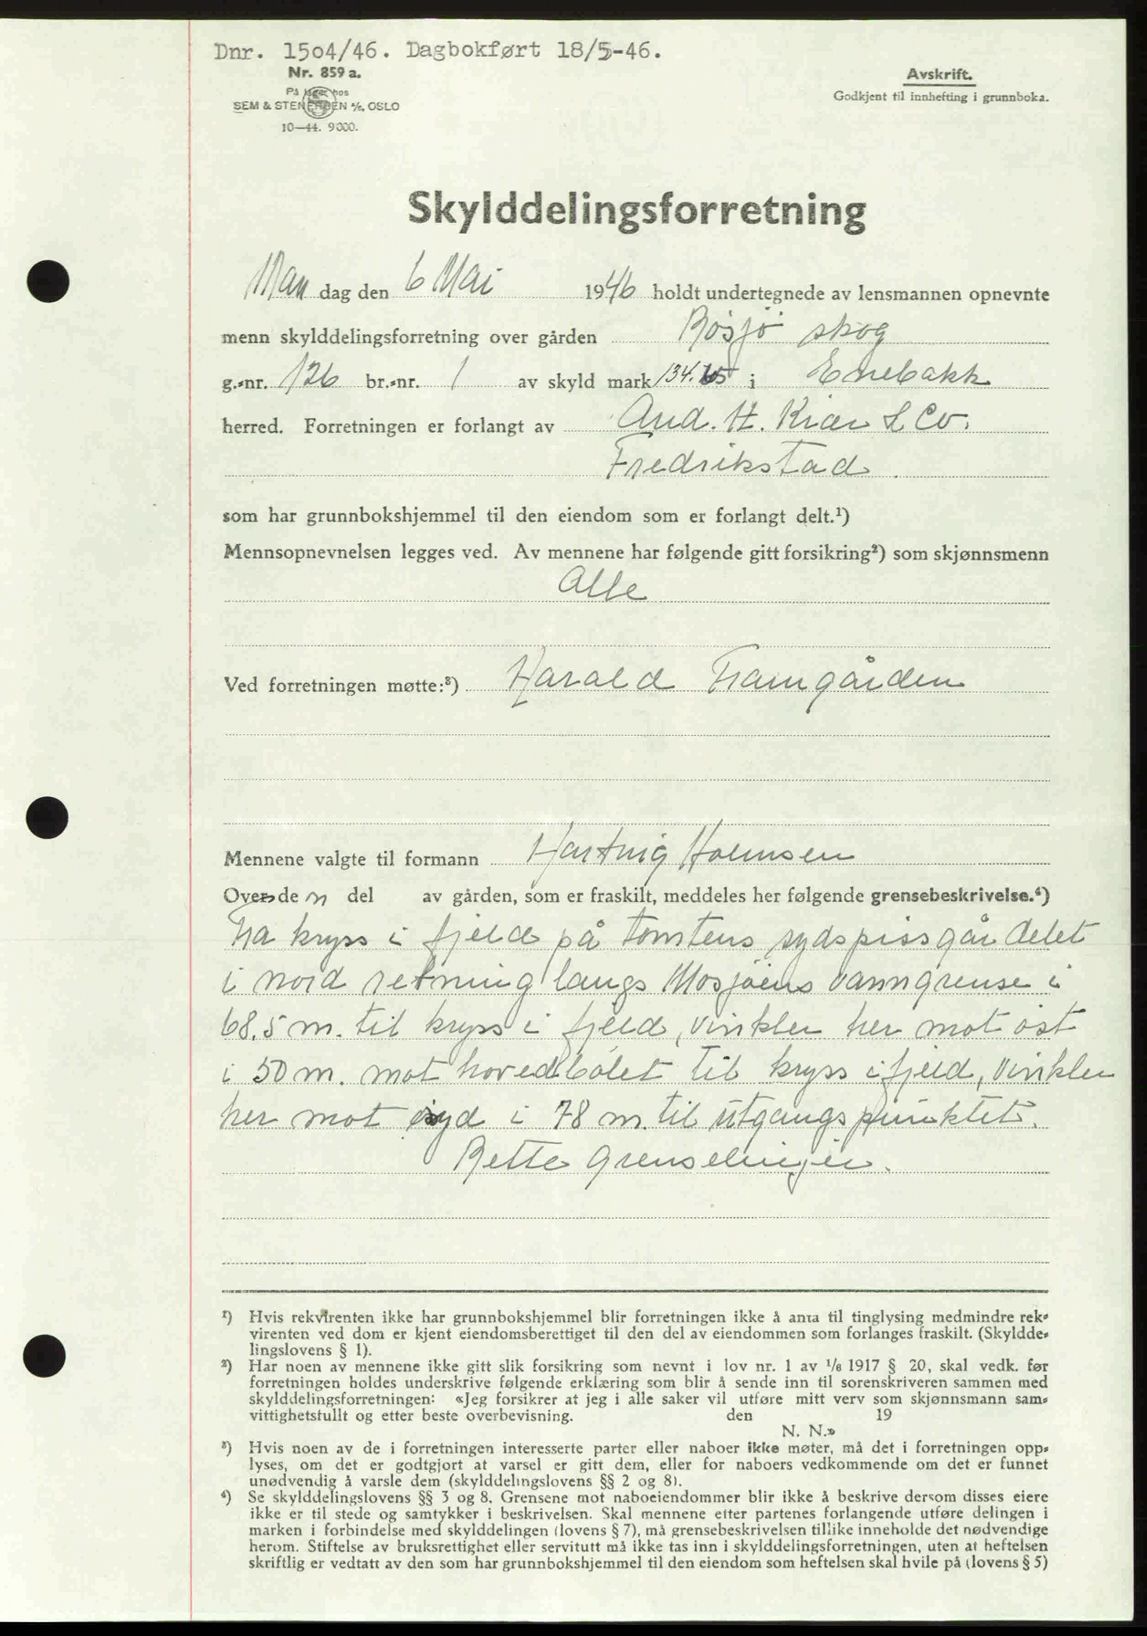 Dnr. 1504/46. Dagbokført 18/5-46.
Nr. 859 a.
På lager hos
SEM & STENERSEN A/S, OSLO
10—44. 9000.
Avskrift.
Godkjent til innhefting i grunnboka.
Skylddelingsforretning
Man dag den 6 Mai 1946 holdt undertegnede av lensmannen opnevnte
menn skylddelingsforretning over gården Røsjø skog
g.-nr. 126 br.-nr. 1 av skyld mark 134.65 i Enebakk
herred. Forretningen er forlangt av And. H. Kiær & Co.
Fredrikstad.
som har grunnbokshjemmel til den eiendom som er forlangt delt.¹)
Mennsopnevnelsen legges ved. Av mennene har følgende gitt forsikring²) som skjønnsmenn
Alle
Ved forretningen møtte:³) Harald Framgården
Mennene valgte til formann Hartvig Holmsen
Over den del av gården, som er fraskilt, meddeles her følgende grensebeskrivelse.⁴)
Fra kryss i fjeld på tomtens sydspiss går delet
i nord retning langs Mosjøens vanngrense i
68.5 m. til kryss i fjeld, vinkler her mot øst
i 50 m. mot hovedbølet til kryss i fjeld, vinkler
her mot syd i 78 m. til utgangspunktet.
Rette grenselinjer.
¹) Hvis rekvirenten ikke har grunnbokshjemmel blir forretningen ikke å anta til tinglysing medmindre rek-
virenten ved dom er kjent eiendomsberettiget til den del av eiendommen som forlanges fraskilt. (Skyldde-
lingslovens § 1).
²) Har noen av mennene ikke gitt slik forsikring som nevnt i lov nr. 1 av 1/6 1917 § 20, skal vedk. før
forretningen holdes underskrive følgende erklæring som blir å sende inn til sorenskriveren sammen med
skylddelingsforretningen: «Jeg forsikrer at jeg i alle saker vil utføre mitt verv som skjønnsmann sam-
vittighetsfullt og etter beste overbevisning. den 19
N. N.»
³) Hvis noen av de i forretningen interesserte parter eller naboer ikke møter, må det i forretningen opp-
lyses, om det er godtgjort at varsel er gitt dem, eller for naboers vedkommende om det er funnet
unødvendig å varsle dem (skylddelingslovens §§ 2 og 8).
⁴) Se skylddelingslovens §§ 3 og 8. Grensene mot naboeiendommer blir ikke å beskrive dersom disses eiere
ikke er til stede og samtykker i beskrivelsen. Skal mennene etter partenes forlangende utføre delingen i
marken i forbindelse med skylddelingen (lovens § 7), må grensebeskrivelsen tillike inneholde det nødvendige
herom. Stiftelse av bruksrettighet eller servitutt må ikke tas inn i skylddelingsforretningen, uten at heftelsen
skriftlig er vedtatt av den som har grunnbokshjemmel til den eiendom som heftelsen skal hvile på (lovens § 5)